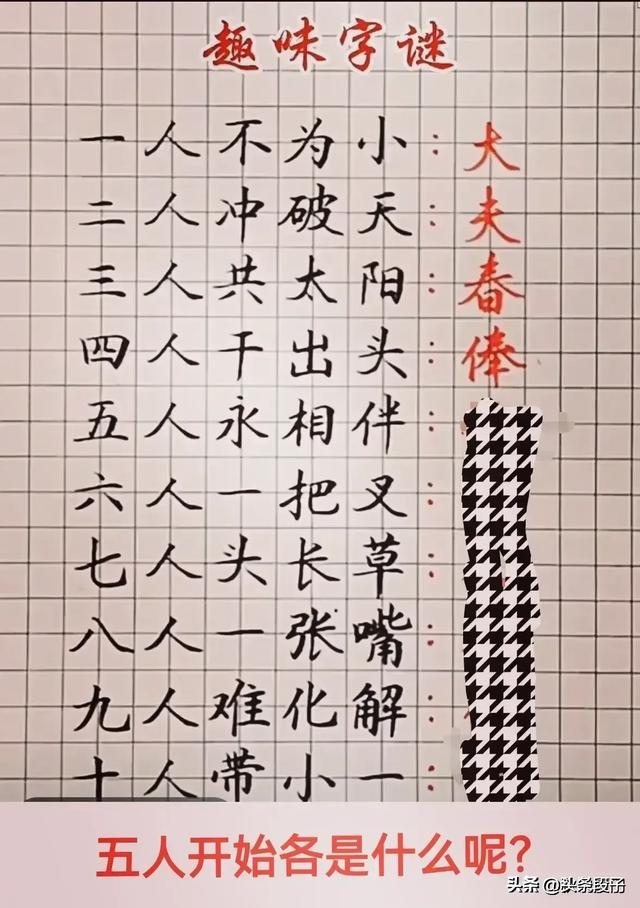 趣味字谜
一人不为小：大
二人冲破天：夫
三人共太阳：春
四人干出头：俸
五人永相伴：
六人一把叉：
七人头长草：
八人一张嘴：
九人难化解：
十人带小一：
五人开始各是什么呢？
头条 @头条段子